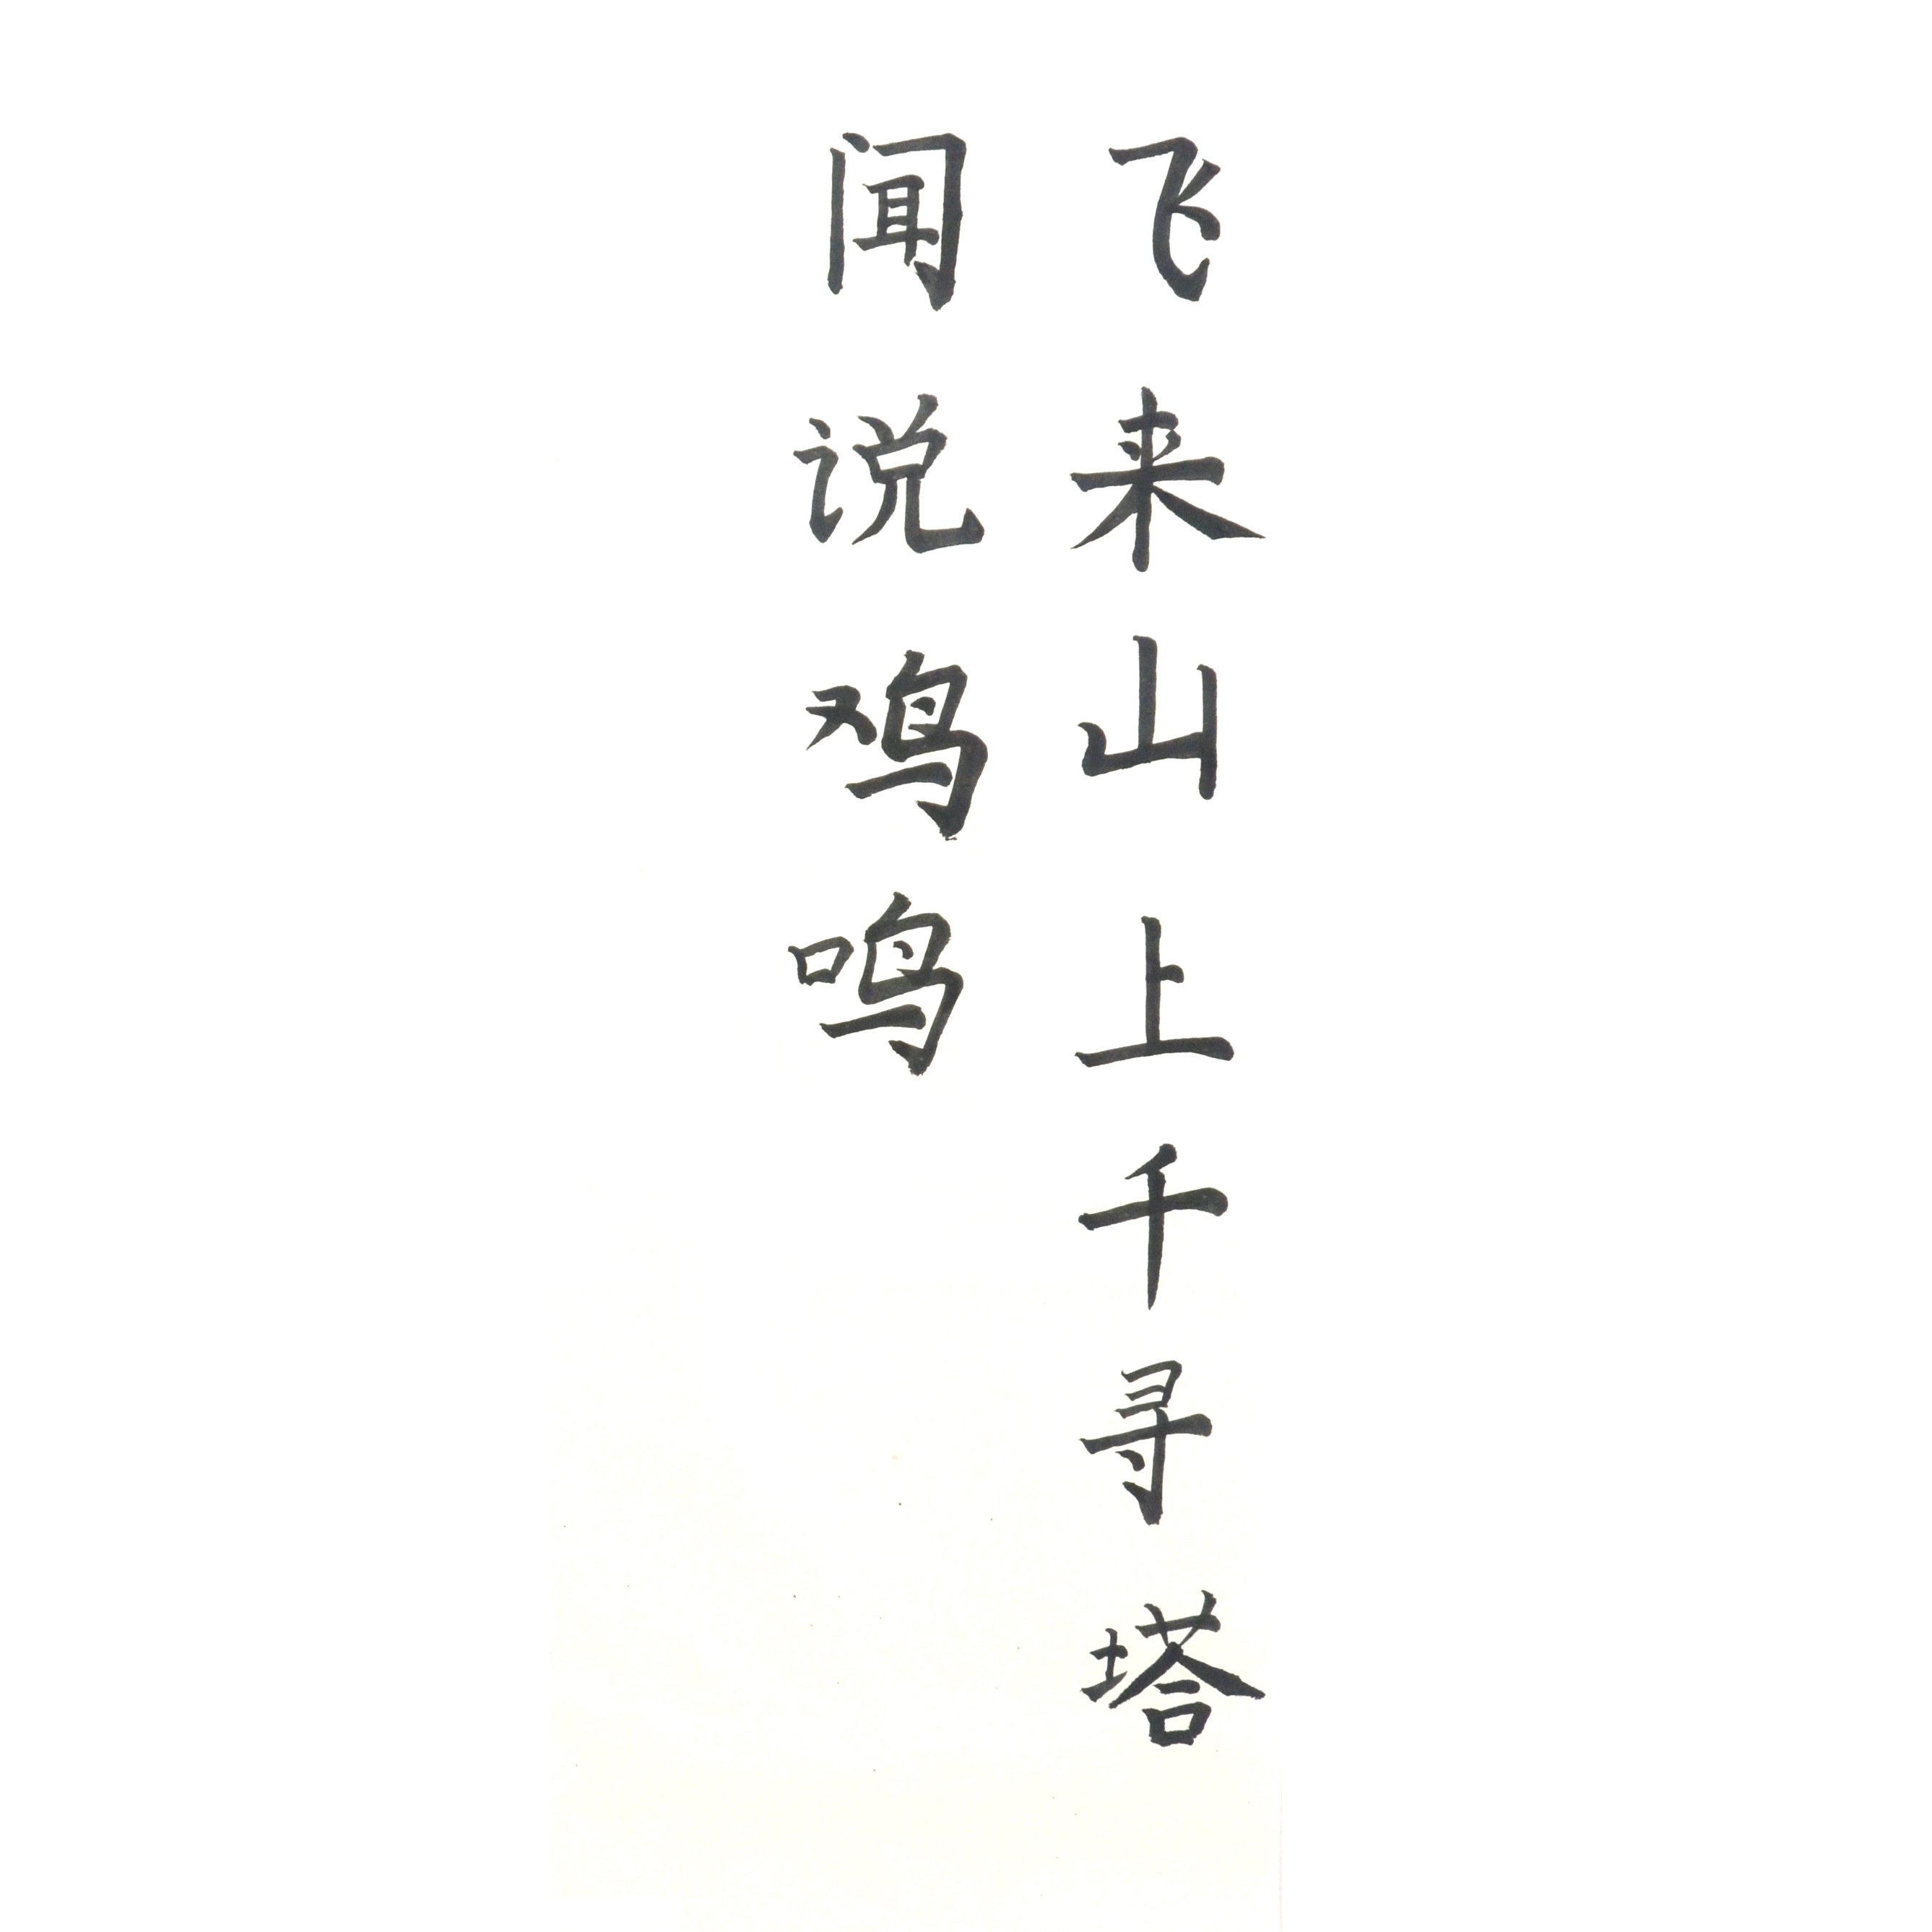 飞来山上千寻塔
闻说鸡鸣